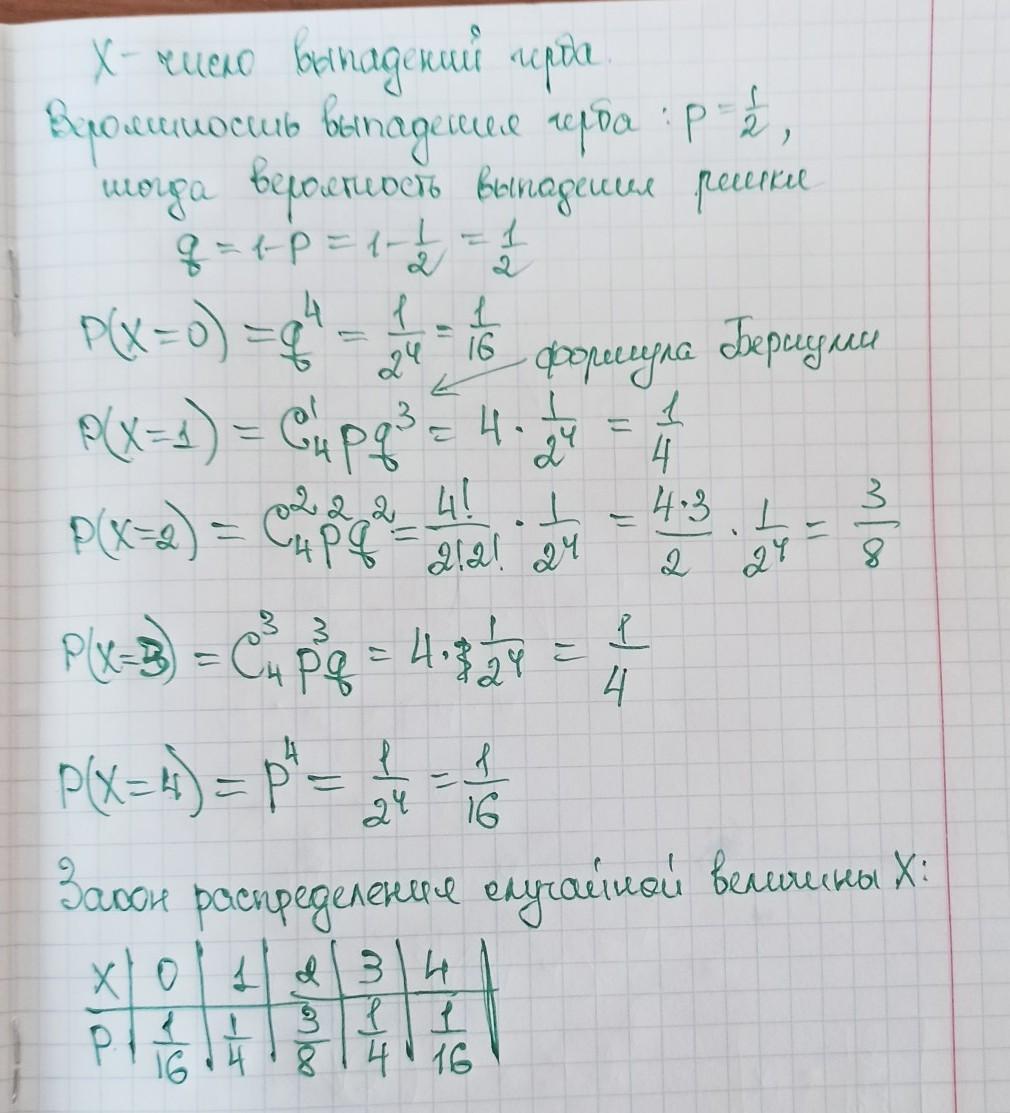 X - число выпадений герба.
Вероятность выпадения герба: p = 1/2,
тогда вероятность выпадения решки
q = 1-p = 1 - 1/2 = 1/2
P(X=0) = q^4 = 1/2^4 = 1/16
формула Бернулли
P(X=1) = C_4^1 p q^3 = 4 · 1/2^4 = 1/4
P(X=2) = C_4^2 p^2 q^2 = 4!/2!2! · 1/2^4 = 4·3/2 · 1/2^4 = 3/8
P(X=3) = C_4^3 p^3 q = 4 · 1/2^4 = 1/4
P(X=4) = p^4 = 1/2^4 = 1/16
Закон распределения случайной величины X:
X | 0 | 1 | 2 | 3 | 4
P | 1/16 | 1/4 | 3/8 | 1/4 | 1/16